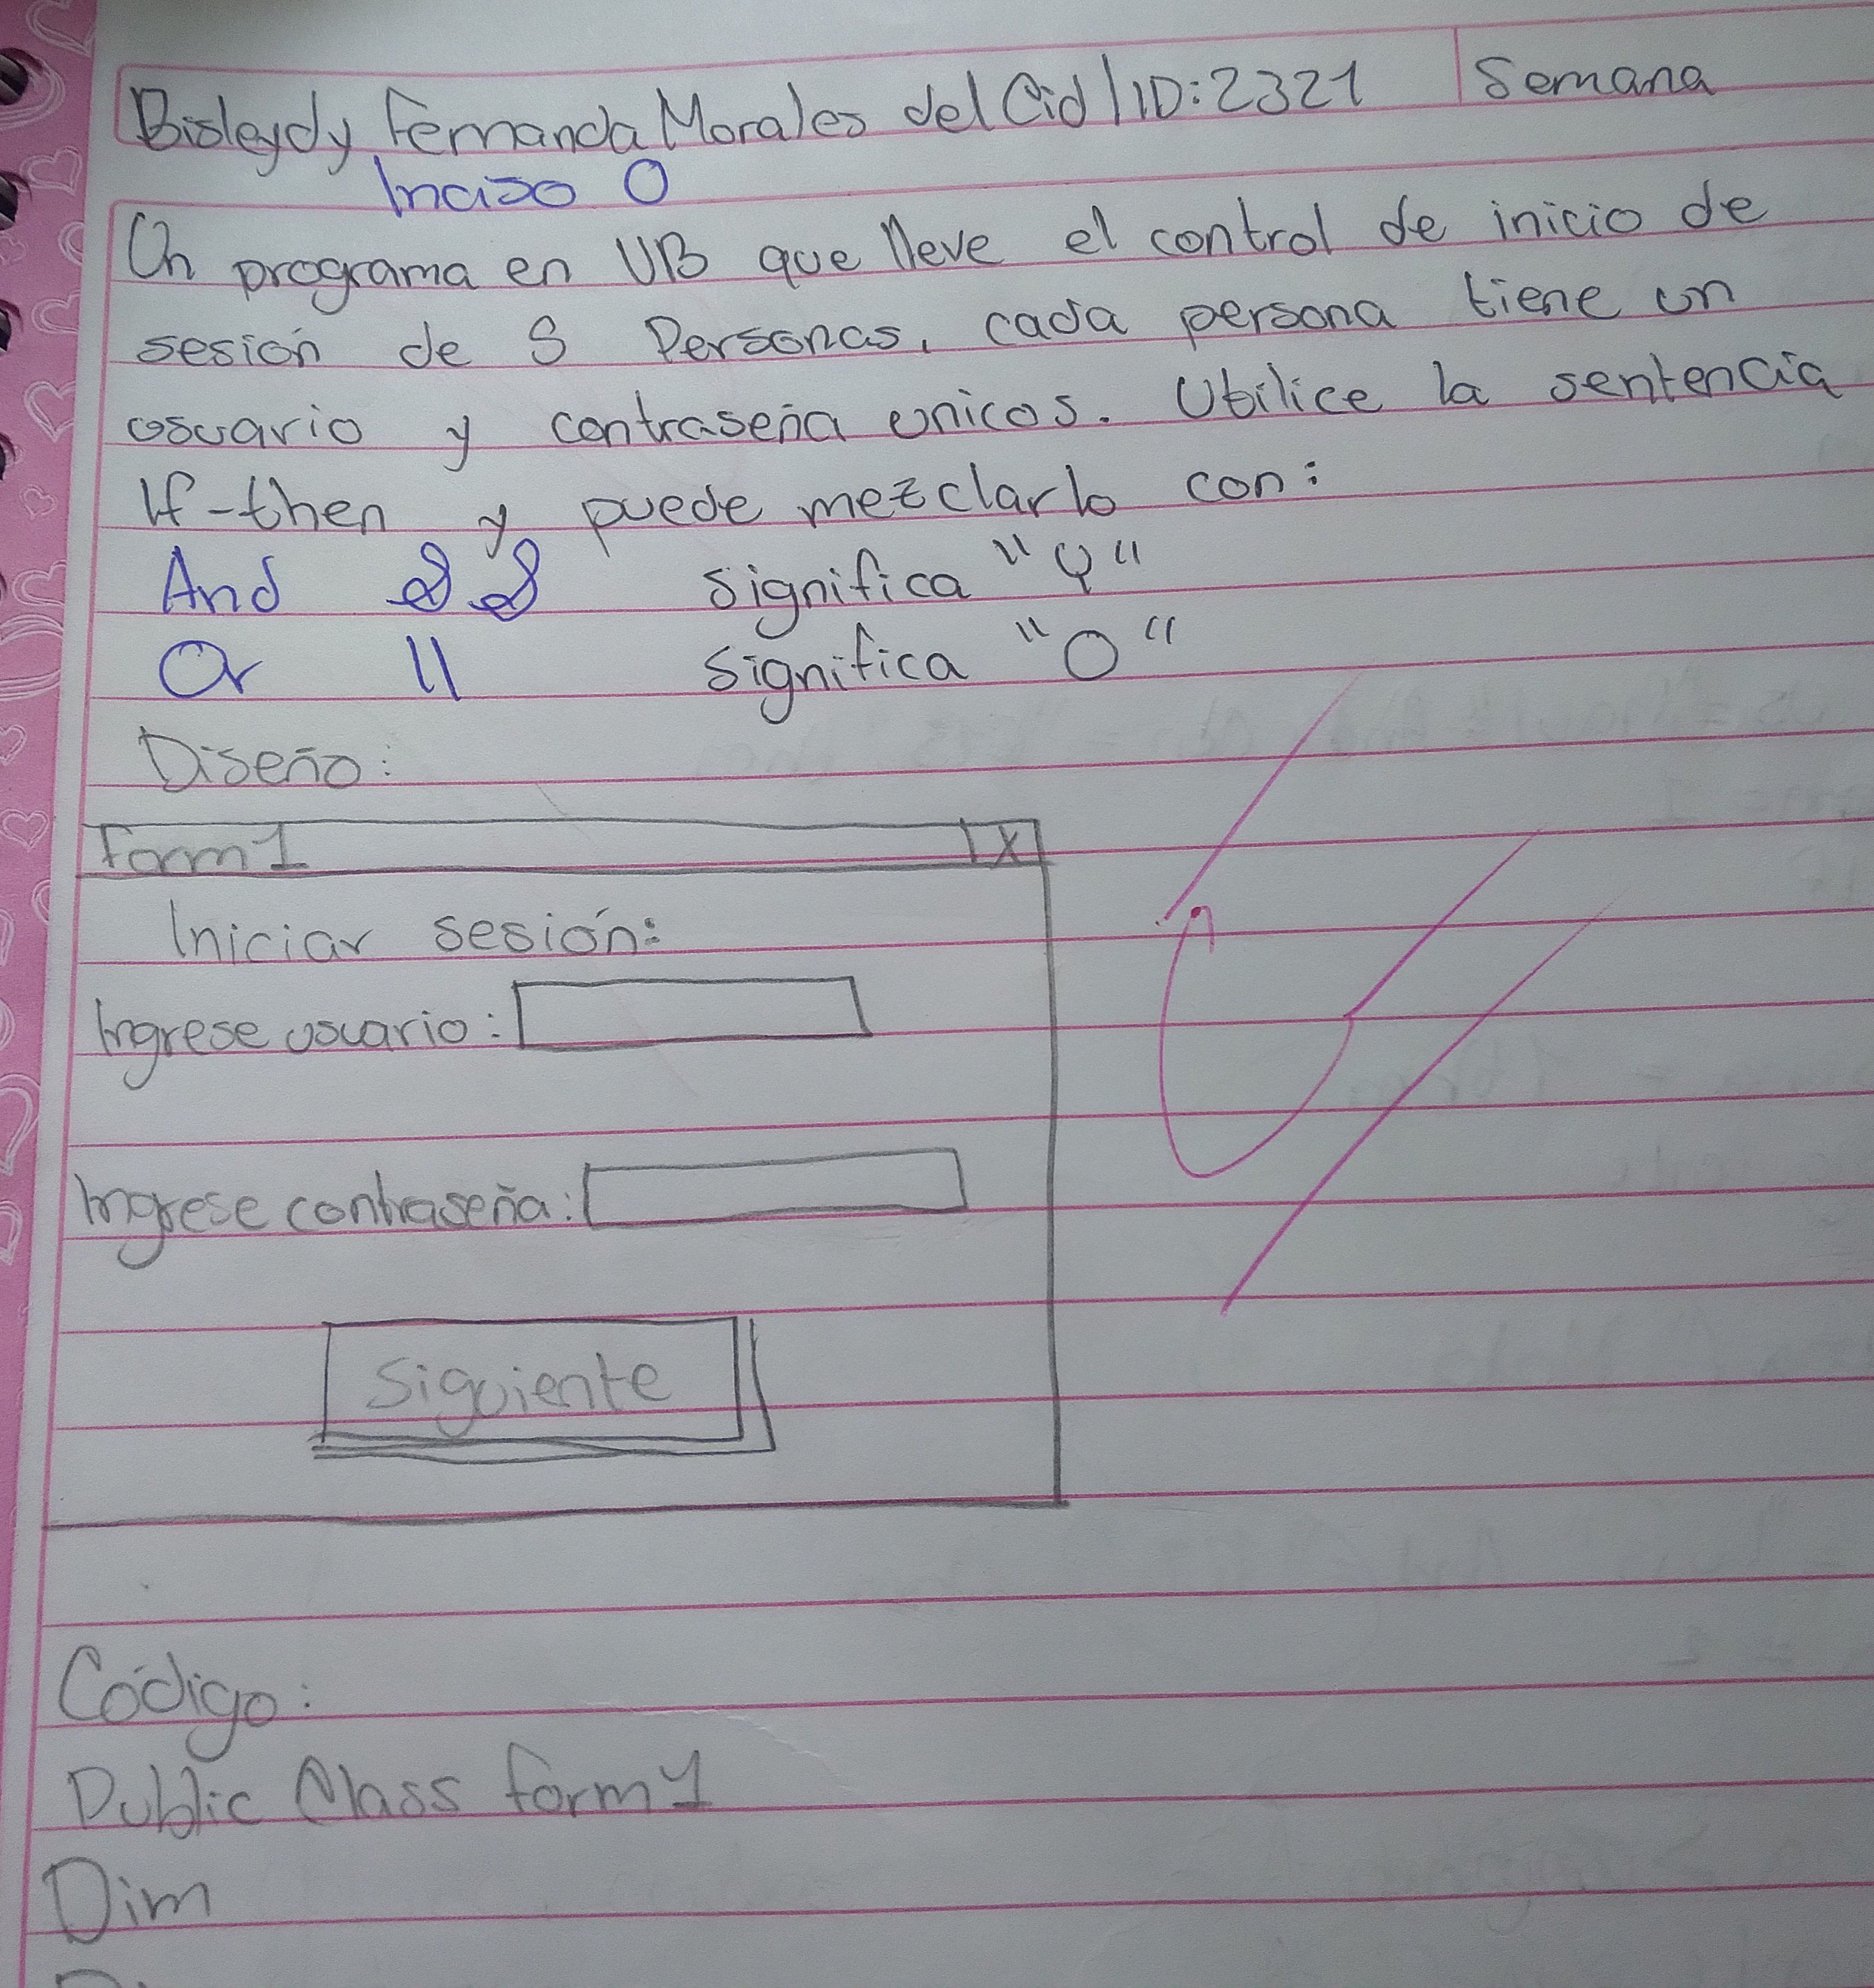 Bisleydy Fernanda Morales del Cid | ID: 2321 Semana
Inciso O
Un programa en VB que lleve el control de inicio de
sesión de 5 Personas, cada persona tiene un
usuario y contraseña unicos. Utilice la sentencia
If-then y puede mezclarlo con:
And && significa "Y"
Or || significa "O"
Diseño:
Form1 X
Iniciar sesión:
Ingrese usuario:
Ingrese contraseña:
Siguiente
Código:
Public Class form1
Dim